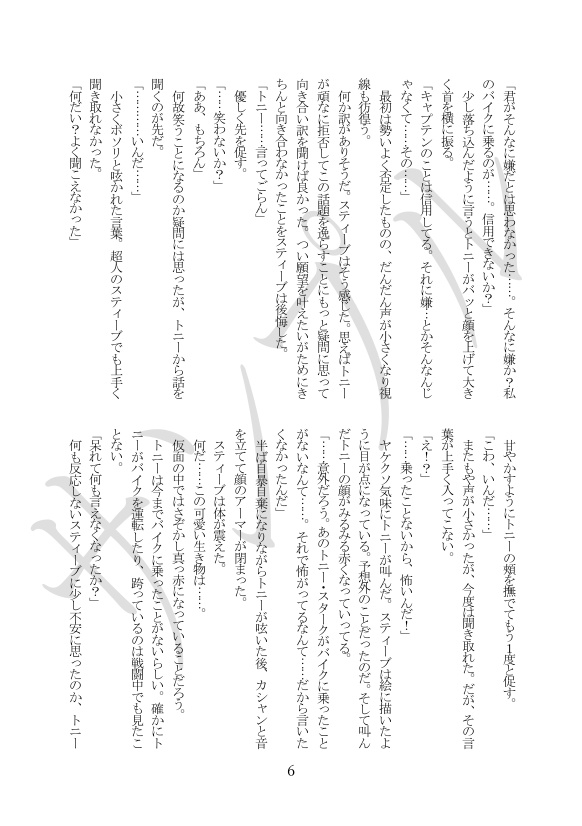 「君がそんなに嫌だとは思わなかった……。そんなに嫌か？私
のバイクに乗るのが……。信用できないか？」
少し落ち込んだように言うとトニーがバッと顔を上げて大き
く首を横に振る。
「キャプテンのことは信用してる。それに嫌…とかそんなんじ
ゃなくて……その……」
最初は勢いよく否定したものの、だんだん声が小さくなり視
線も彷徨う。
何か訳がありそうだ。スティーブはそう感じた。思えばトニー
が頑なに拒否してこの話題を逸らすことにもっと疑問に思って
向き合い訳を聞けば良かった。つい願望を叶えたいがためにき
ちんと向き合わなかったことをスティーブは後悔した。
「トニー……言ってごらん」
優しく先を促す。
「……笑わないか？」
「ああ、もちろん」
何故笑うことになるのか疑問には思ったが、トニーから話を
聞くのが先だ。
「…………いんだ……」
小さくボソリと呟かれた言葉。超人のスティーブでも上手く
聞き取れなかった。
「何だい？よく聞こえなかった」
甘やかすようにトニーの頬を撫でてもう１度と促す。
「こわ、いんだ……」
またもや声が小さかったが、今度は聞き取れた。だが、その言
葉が上手く入ってこない。
「え！？」
「……乗ったことないから、怖いんだ！」
ヤケクソ気味にトニーが叫んだ。スティーブは絵に描いたよ
うに目が点になっている。予想外のことだったのだ。そして叫ん
だトニーの顔がみるみる赤くなっていってる。
「……意外だろう。あのトニー・スタークがバイクに乗ったこと
がないなんて……。それで怖がってるなんて……だから言いた
くなかったんだ」
半ば自暴自棄になりながらトニーが呟いた後、カシャンと音
を立てて顔のアーマーが閉まった。
スティーブは体が震えた。
何だ……この可愛い生き物は……。
仮面の中ではさぞかし真っ赤になっていることだろう。
トニーは今までバイクに乗ったことがないらしい。確かにト
ニーがバイクを運転したり、跨っているのは戦闘中でも見たこ
とない。
「呆れて何も言えなくなったか？」
何も反応しないスティーブに少し不安に思ったのか、トニー
6
サンプル